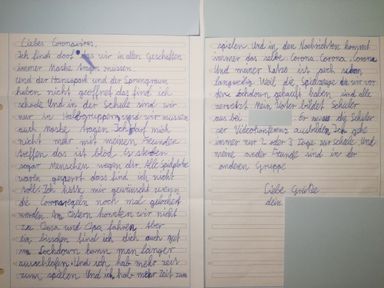 Lieber Coronavirus,
Ich find doof, das wir in allen Geschäften
immer Maske tragen müssen
Und der Hansapark und Sprungraum
haben nicht geöffnet das find ich
schade Und in der Schule sind wir
nur in Halbgruppen und wir müssen
auch Maske tragen Ich darf mich
nicht mehr mit meinen Freunden
treffen das ist blöd. Es starben
sogar Menschen wegen dir. Alle Spielplätze
waren gesperrt dass find ich nicht
toll. Ich hätte mir gewünscht wenn
die Coronaregeln noch mal gelockert
werden. An Ostern konnten wir nicht
zu Oma und Opa fahren. Aber
ein bisschen find ich dich auch gut
im Lockdown konn man länger
ausschlafen. Und ich hab mehr zeit
zum spielen Und ich hab mehr Zeit zum
spielen. Und in den Nachrichten kommt
immer das selbe Corona. Corona. Corona
und meiner Katze ist auch schon
langweilig Weil die Spielzeuge die wir vor
dem Lockdown gekauft haben sind alle
zerrockt Mein Vater bildet Schüler
aus bei Er muss die Schüler
per Videokonferenz ausbilden. Ich gehe
immer nur 2 oder 3 Tage zur Schule. Und
meine Freunde sind in der
anderen Gruppe
Liebe Grüße
dein